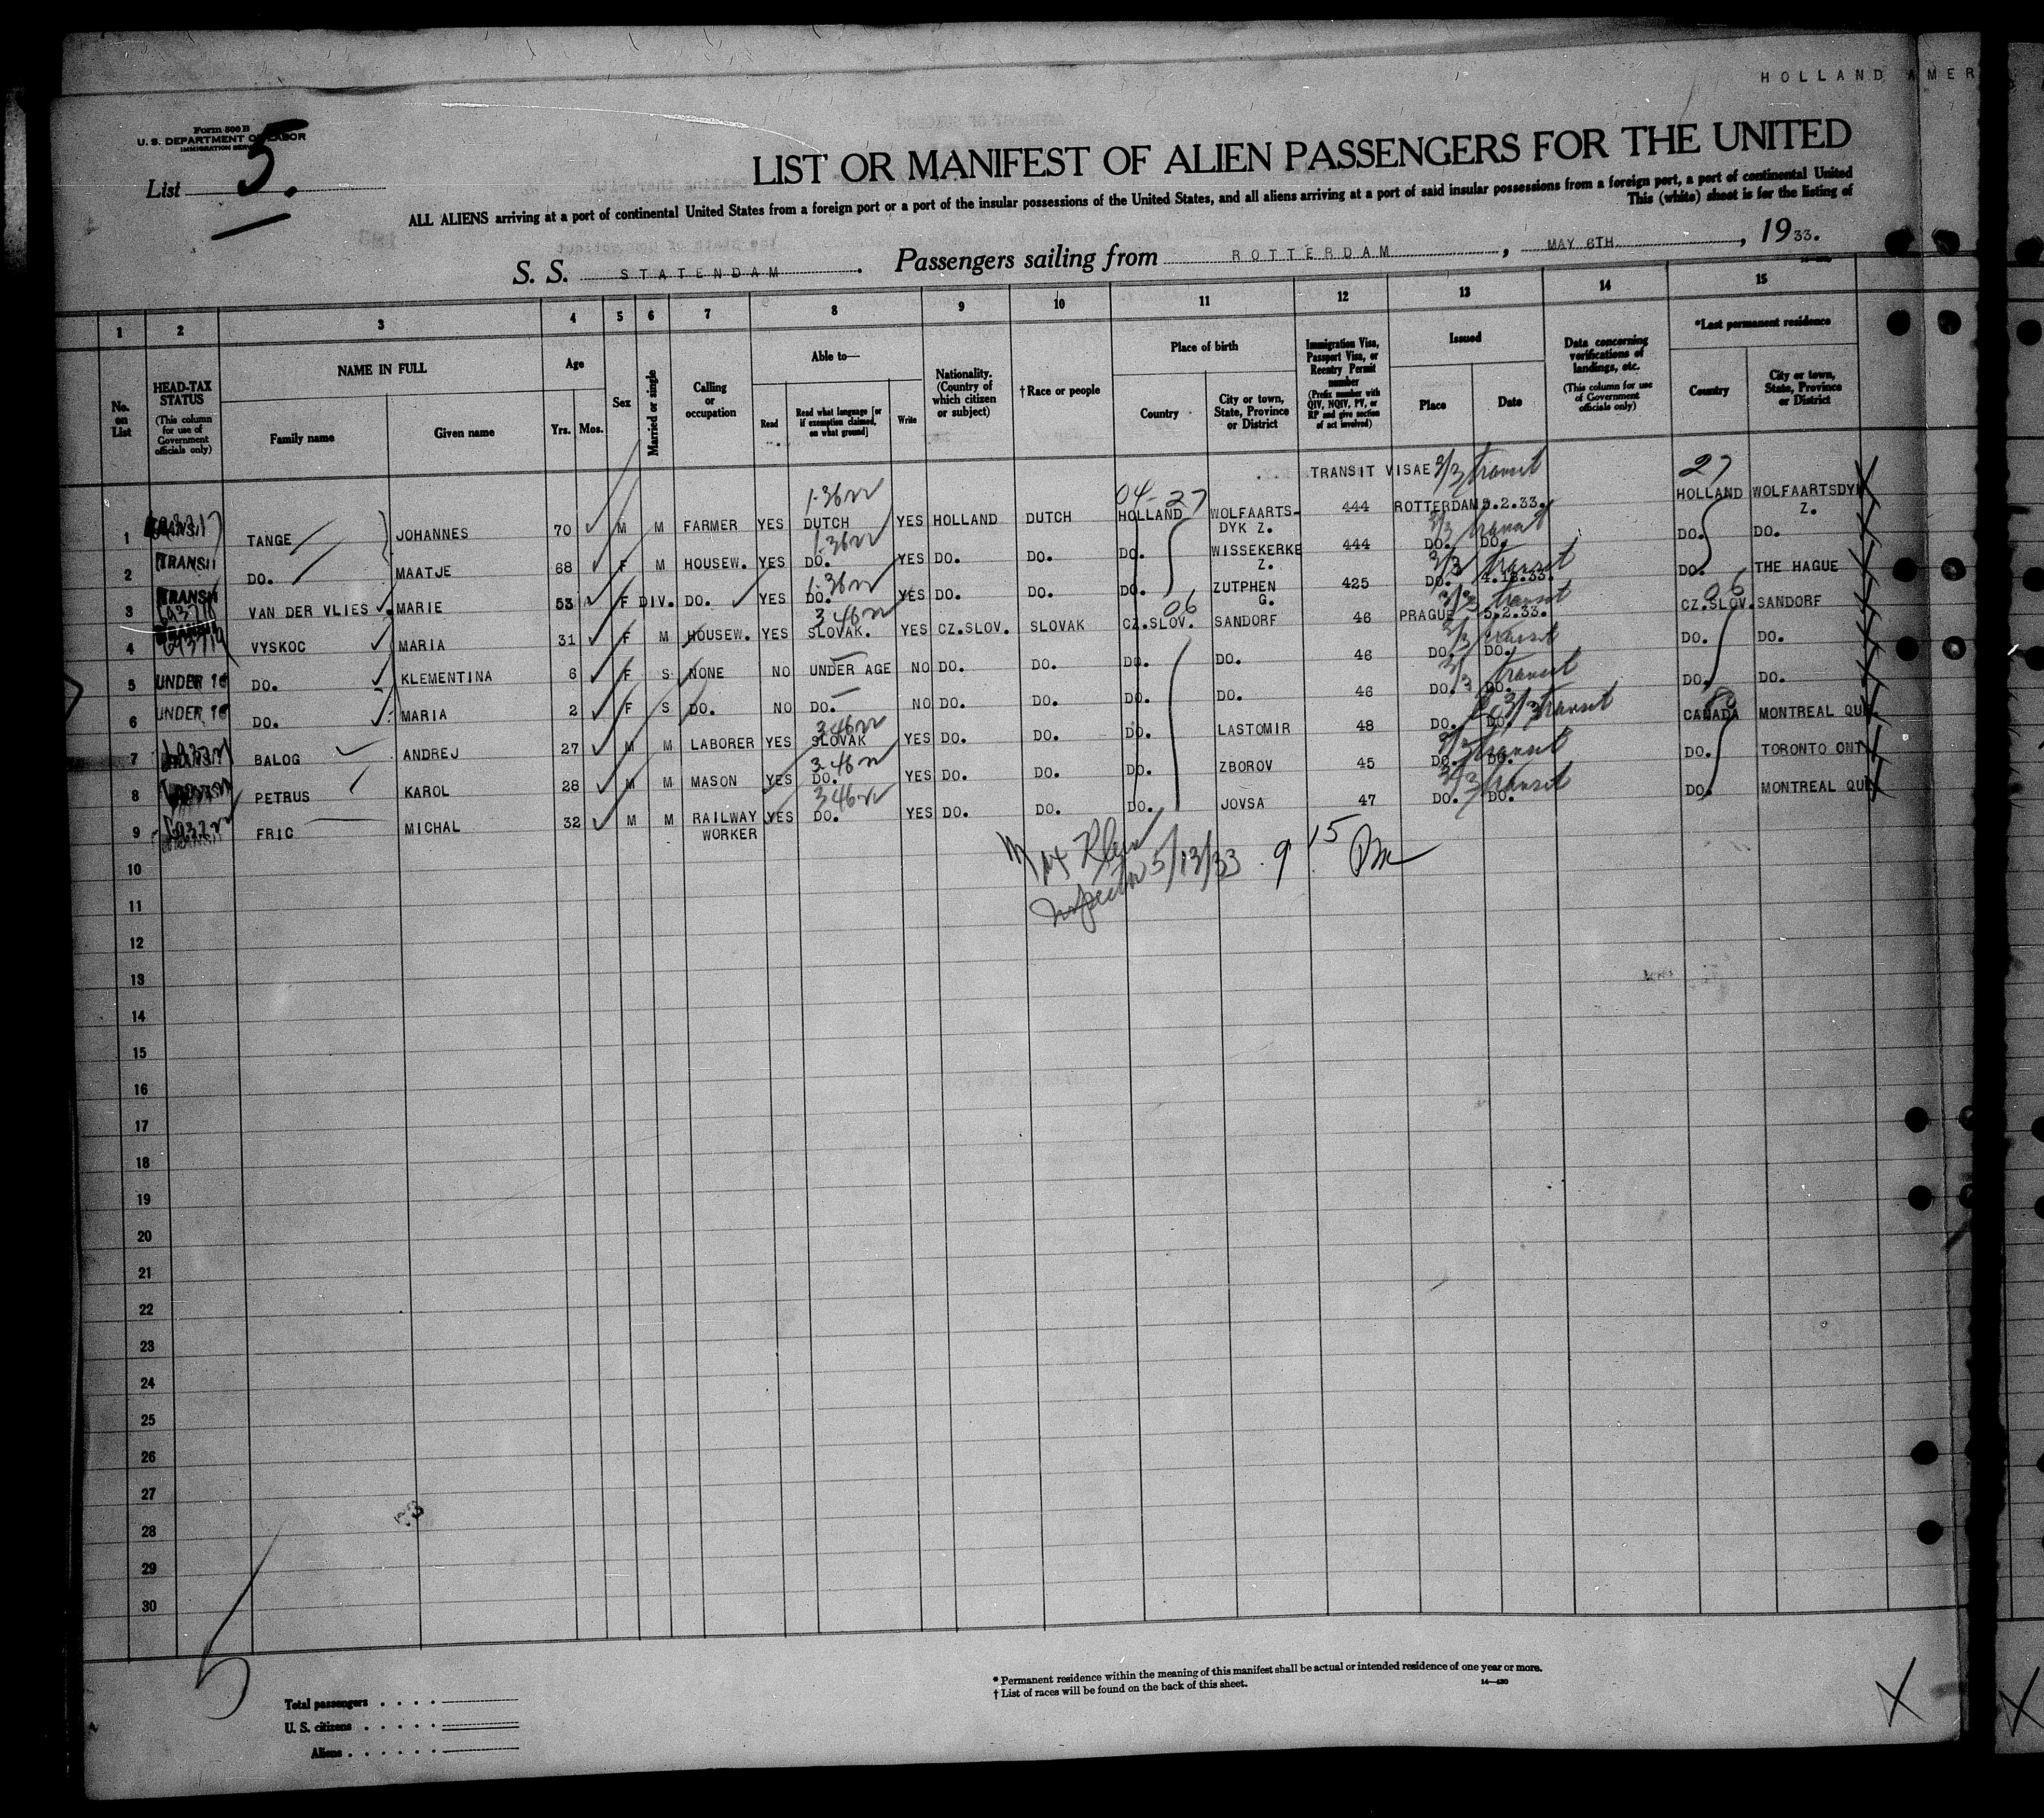 HOLLAND AMER
Form 500 B
U. S. DEPARTMENT OF LABOR
IMMIGRATION SERVICE
List 5.
LIST OR MANIFEST OF ALIEN PASSENGERS FOR THE UNITED
ALL ALIENS arriving at a port of continental United States from a foreign port or a port of the insular possessions of the United States, and all aliens arriving at a port of said insular possessions from a foreign port, a port of continental United
This (white) sheet is for the listing of
S. S. STATENDAM. Passengers sailing from ROTTERDAM, MAY 6TH, 1933.
1 2 3 4 5 6 7 8 9 10 11 12 13 14 15
No. on List
HEAD-TAX STATUS (This column for use of Government officials only)
NAME IN FULL Family name Given name
Age Yrs. Mos.
Sex
Married or single
Calling or occupation
Able to— Read Read what language [or if exemption claimed, on what ground] Write
Nationality. (Country of which citizen or subject)
†Race or people
Place of birth Country City or town, State, Province or District
Immigration Visa, Passport Visa, or Reentry Permit number (Prefix number with QIV, NQIV, PV, or RP and give section of act involved)
Issued Place Date
Data concerning verifications of landings, etc. (This column for use of Government officials only)
*Last permanent residence Country City or town, State, Province or District
TRANSIT VISAE 3/3 transit
1-36 04-27 27
1 TANGE JOHANNES 70 M M FARMER YES DUTCH YES HOLLAND DUTCH HOLLAND WOLFAARTS-DYK Z. 444 ROTTERDAM 5.2.33. HOLLAND WOLFAARTSDYK Z.
2 TRANSIT DO. MAATJE 68 F M HOUSEW. YES DO. YES DO. DO. DO. WISSEKERKE Z. 444 DO. DO. DO. DO.
3 TRANSIT VAN DER VLIES MARIE 53 F DIV. DO. YES DO. YES DO. DO. DO. ZUTPHEN G. 425 DO. 4.18.33. DO. THE HAGUE
4 VYSKOC MARIA 31 F M HOUSEW. YES SLOVAK. YES CZ.SLOV. SLOVAK CZ.SLOV. SANDORF 46 PRAGUE 5.2.33. CZ.SLOV. SANDORF
5 UNDER 16 DO. KLEMENTINA 6 F S NONE NO UNDER AGE NO DO. DO. DO. DO. 46 DO. DO. DO. DO.
6 UNDER 16 DO. MARIA 2 F S DO. NO DO. NO DO. DO. DO. DO. 46 DO. DO. DO. DO.
7 BALOG ANDREJ 27 M M LABORER YES SLOVAK YES DO. DO. DO. LASTOMIR 48 DO. DO. CANADA MONTREAL QUE.
8 PETRUS KAROL 28 M M MASON YES DO. YES DO. DO. DO. ZBOROV 45 DO. DO. DO. TORONTO ONT.
9 FRIC MICHAL 32 M M RAILWAY WORKER YES DO. YES DO. DO. DO. JOVSA 47 DO. DO. DO. MONTREAL QUE.
Inspector 5/13/33 . 9 15 Pm
10
11
12
13
14
15
16
17
18
19
20
21
22
23
24
25
26
27
28
29
30
Total passengers
U. S. citizens
Aliens
* Permanent residence within the meaning of this manifest shall be actual or intended residence of one year or more.
† List of races will be found on the back of this sheet.
14—430